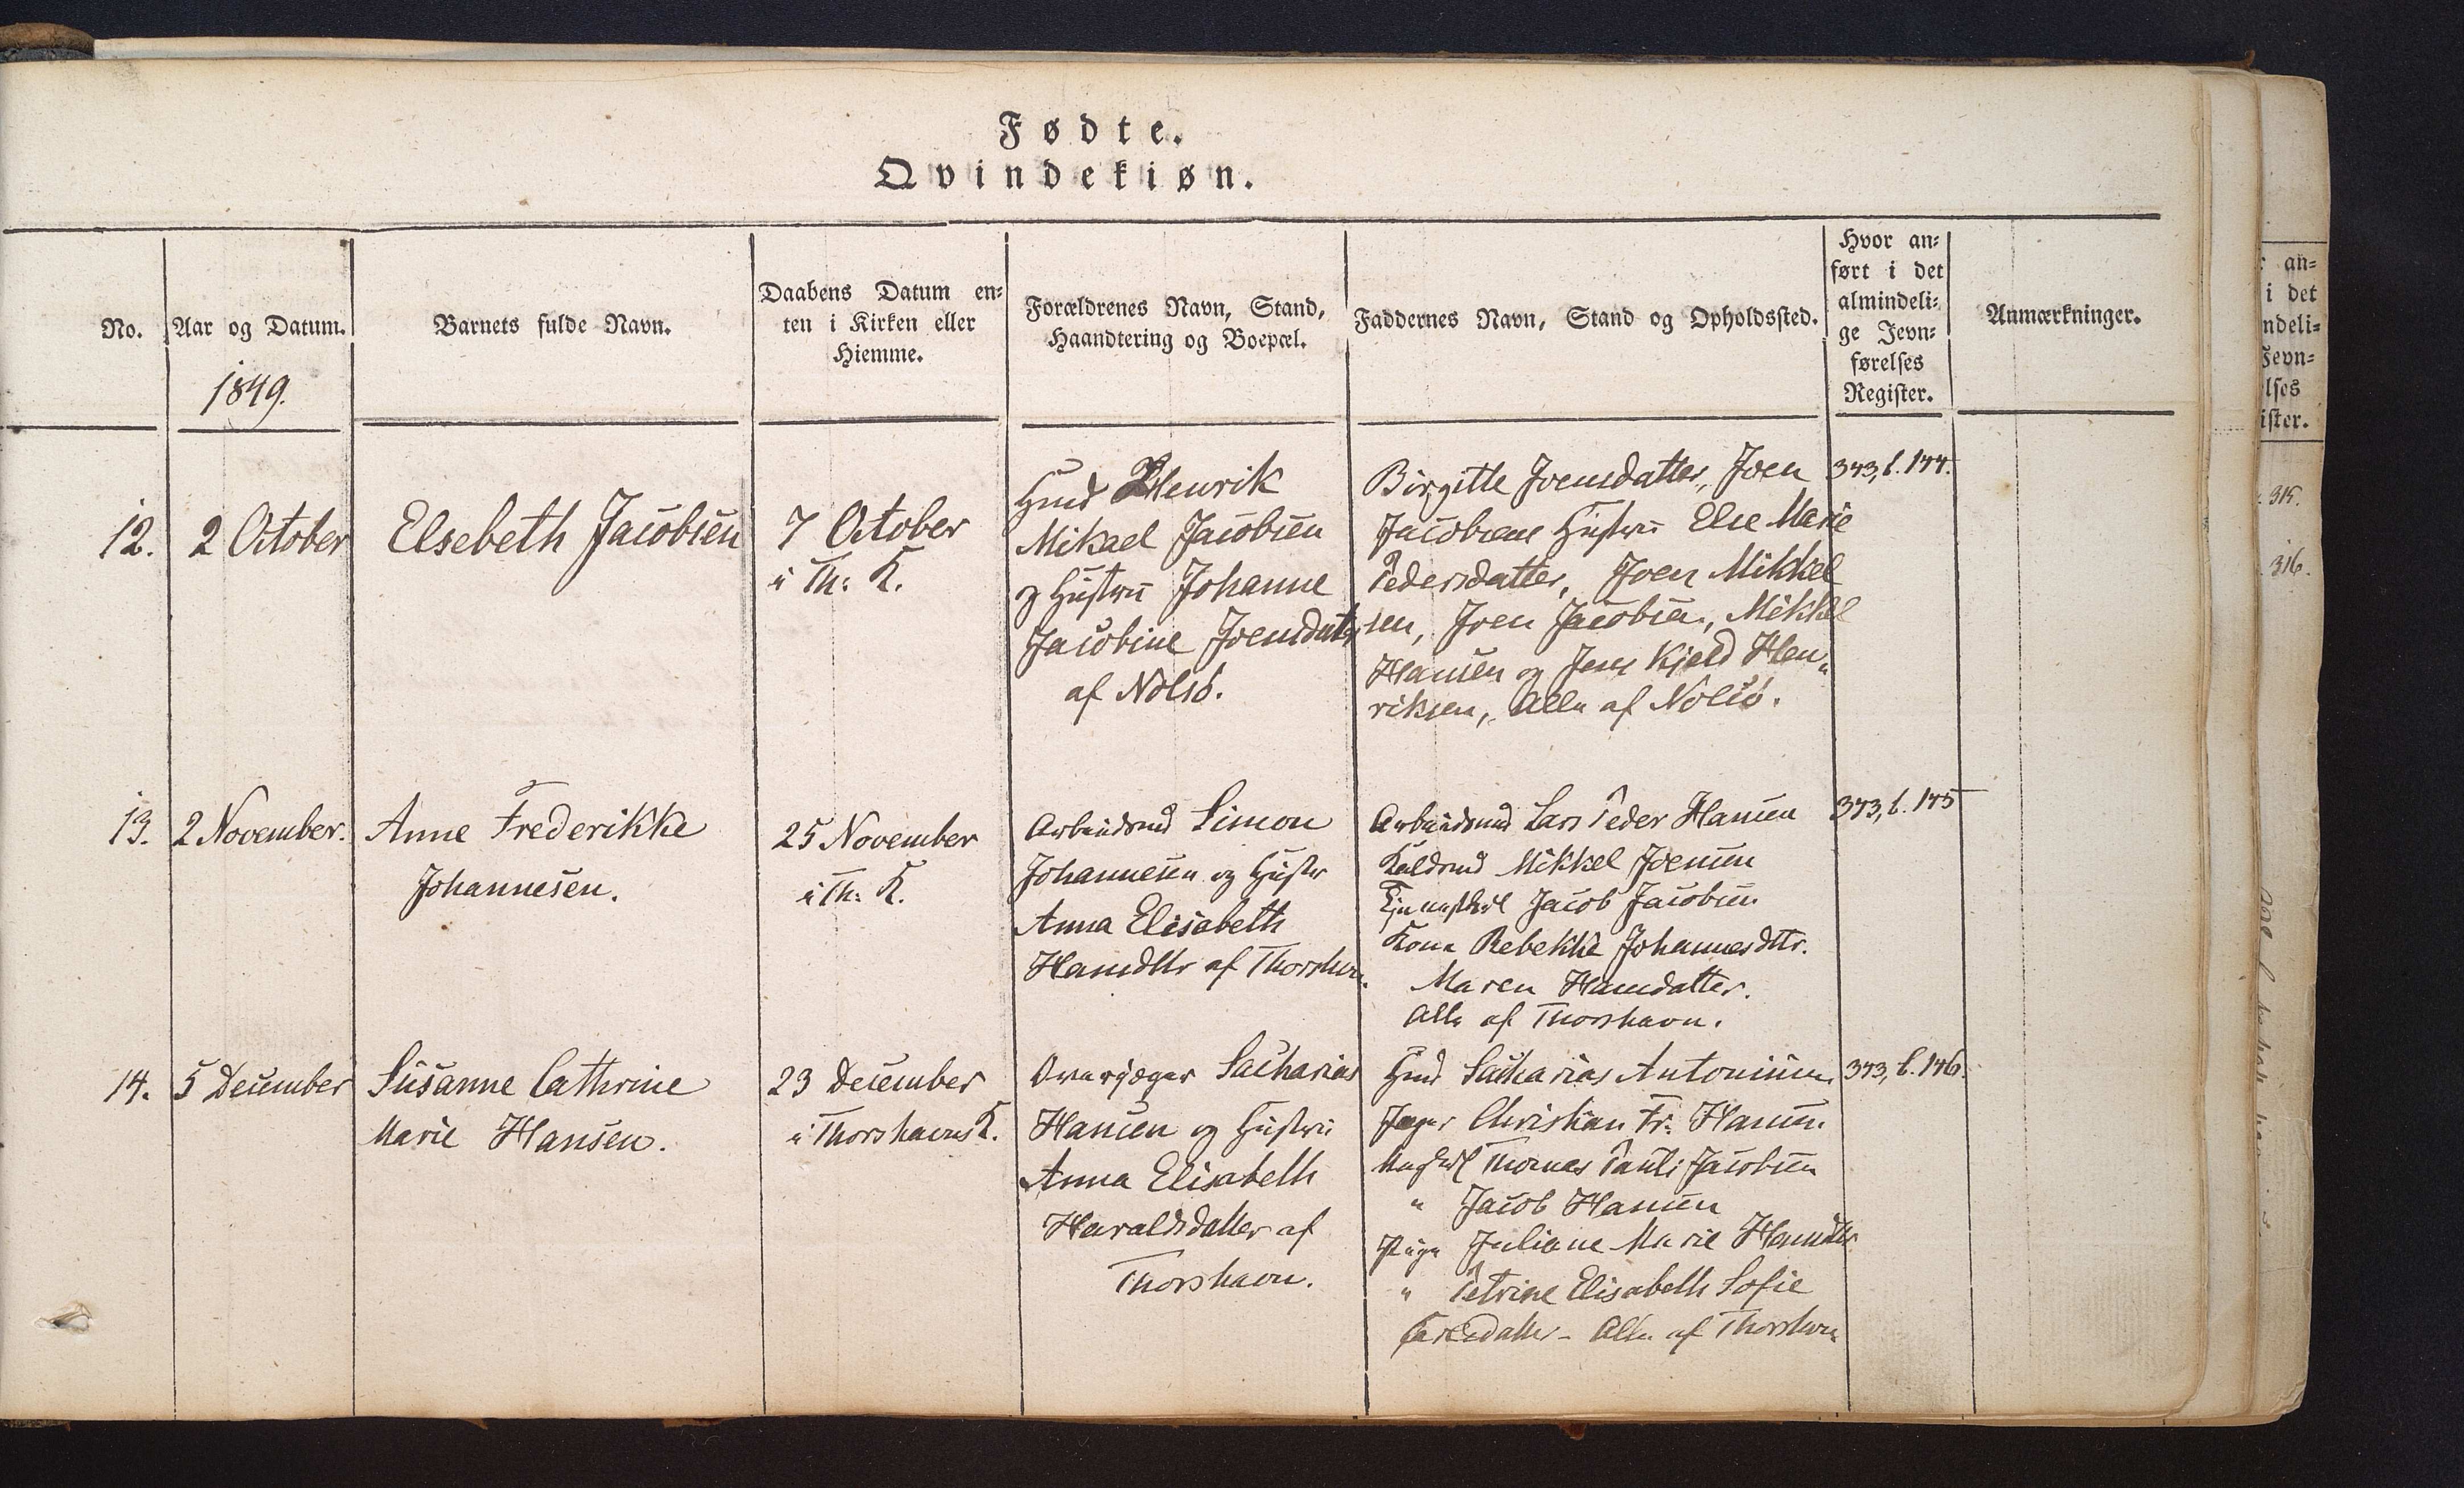 Fødte.
Qvindekiøn.
No.
Aar og Datum.
1849.
Barnets fulde Navn.
Daabens Datum en=
ten i Kirken eller
Hiemme.
Forældrenes Navn, Stand,
Haandtering og Boepæl.
Faddernes Navn, Stand og Opholdssted.
Hvor an=
ført i det
almindeli=
ge Jevn=
førelses
Register.
Anmærkninger.
12.
2 October
Elsebeth Jacobsen
7 October
i Th: K.
Hmd Henrik
Mikael Jacobsen
og Hustru Johanne
Jacobine Joensdatter
af Nolsö.
Birgitte Joensdatter, Joen
Jacobsens Hustru Else Marie
Pedersdatter, Joen Mikkel
sen, Joen Jacobsen, Mikkel
Hansen og Jens Kjeld Hen„
riksen, Alle af Nolsö.
343, l. 144.
13.
2 November.
Anne Frederikke
Johannesen.
25 November
i Th: K.
Arbeidsmd Simon
Johannesen og Hustr
Anna Elisabeth
Hansdttr af Thorshvn.
Arbeidsmd Lars Peder Hansen
Mikkel Joensen
Jacob Jacobsen
Kone Rebekka Johannesdttr.
Maren Hansdatter.
Alle af Thorshavn.
343, l. 145
14.
5 December
Susanne Cathrine
Marie Hansen.
23 December
i Thorshavns K.
Sacharias
Hansen og Hustru
Anna Elisabeth
Haraldsdatter af
Thorshavn.
Hmd Sacharias Antonisen.
Jæger Christian Fr: Hansen.
Ungkarl Thomas Pauli Jacobsen
„ Jacob Hansen
Pige Juliane Marie Hansdttr
„ Petrine Elisabeth Sofie
Alle af Thorshvn
343, l. 146.
r an=
i det
ndeli=
Jevn=
elses
ister.
315.
316.